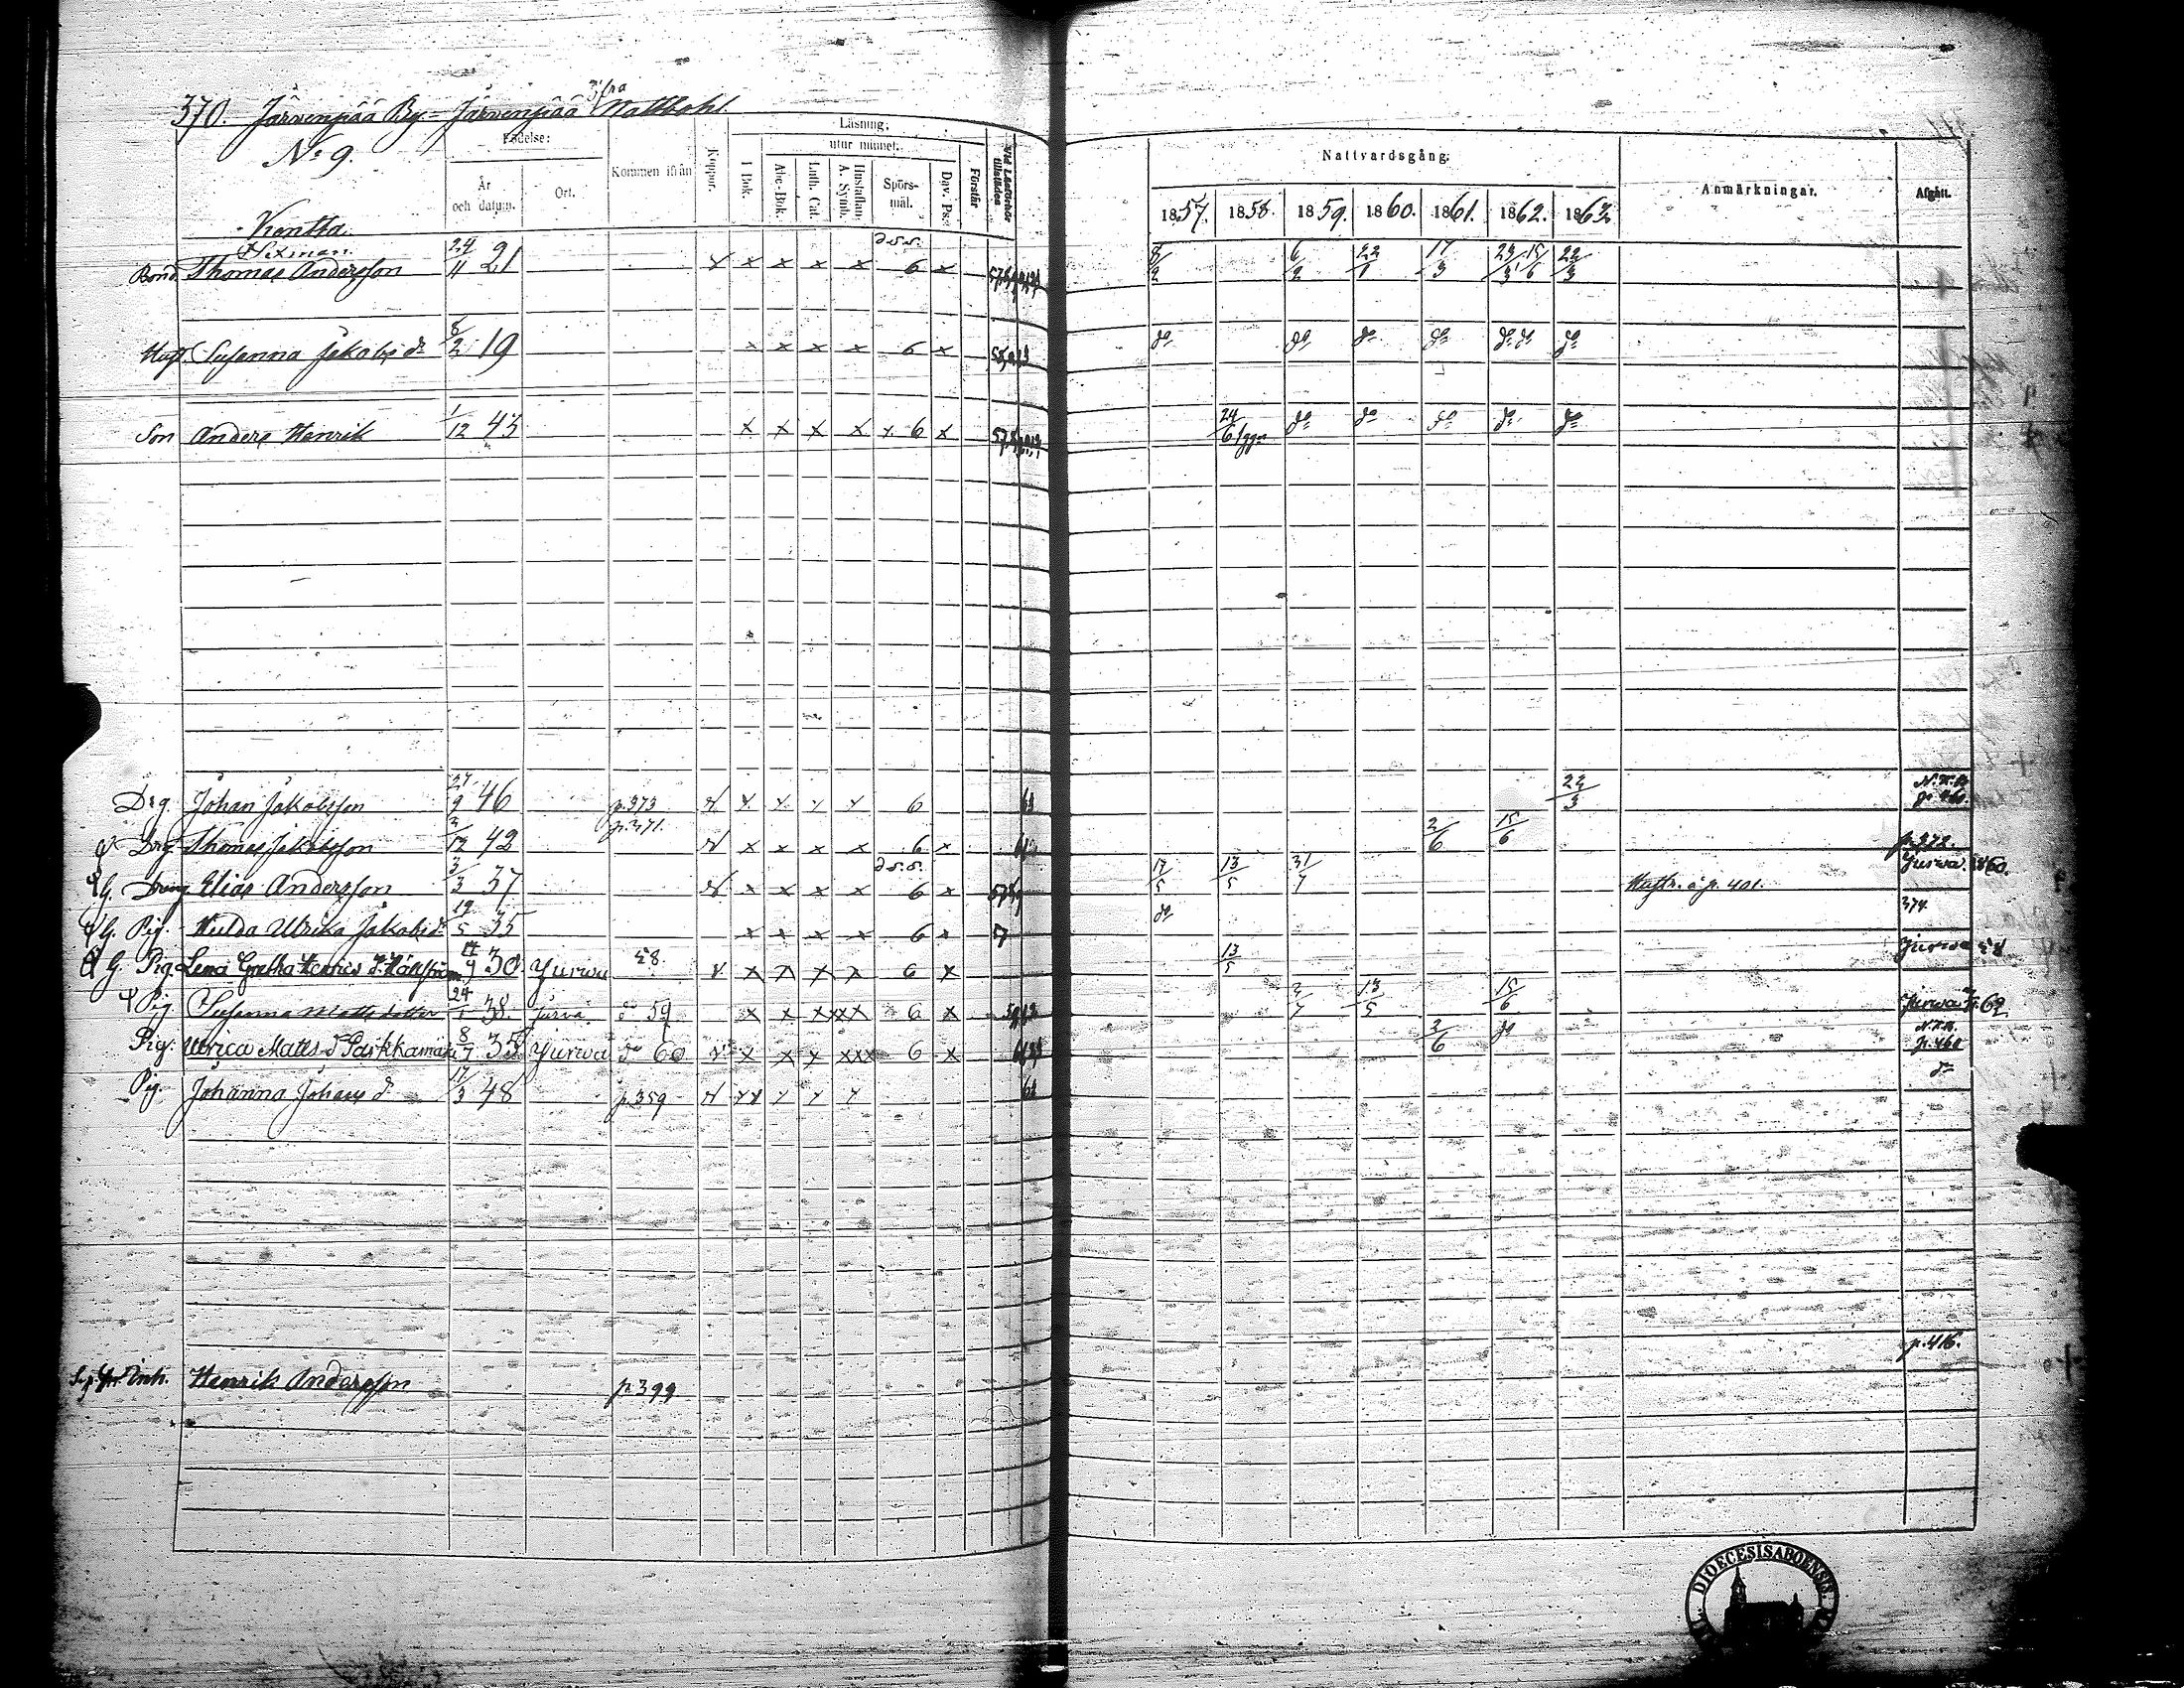 370. Järvenpää By = Järvenpää Mattbohl.
3/fra
No 9.
Kentta.
Födelse:
År och datum.
Ort.
Kommen ifrån
Koppor.
Läsning:
utur minnet:
I Bok.
Abc-Bok.
Luth. Cat.
Hustaflan.
A. Symb.
Spörsmål.
Dav. Ps.
Förstår
Vid Läseförhör tillstädes
Nattvardsgång:
1857. 1858. 1859. 1860. 1861. 1862. 1863.
Anmärkningar.
Afgått.
Bond. Thomas Andersson 24/11 21 x x x x 6 x 8/2 6/2 22/1 17/3 23/3 15/6 22/3
Hust. Susanna Jakobs dr 8/2 19 x x x x 6 x do do do do do do do
Son Anders Henrik 1/12 43 x x x x x 6 x 24/6 1 ggn do do do do do
Drg Johan Jakobsson 27/9 46 p.373 6 61 22/3
Drg Thomas Jakobsson 2/12 42 p.371. x x x x 6 x 2/6 15/6 p.372.
G. Dreng Elias Andersson 3/3 37 x x x x 6 x 17/5 13/5 31/7 Hustr. å p. 401. Jurwa 1860.
G. Pig. Hulda Ulrika Jakobs dr 19/5 35 x x x x 6 x 57 do 374.
G. Pig. Lena Gretha Henrics d. Hällström 30 Jurwa 58. x x x x 6 x 13/5 Jurwa
Pig Susanna Matts dotter 24/1 38. Jurva do 59 x x xxxx 6 x 2/7 13/5 15/6 Jurwa 62
Pig. Ulrica Matts d Parkkamäki 8/7 35 Jurwa do 60 x x x xxx 6 x 2/6 do p.460
Pig. Johanna Johans dr 17/3 48 p.359 61 do
Inh. Henrik Andersson p 399 p.416.
DIOECESIS ABOENSIS